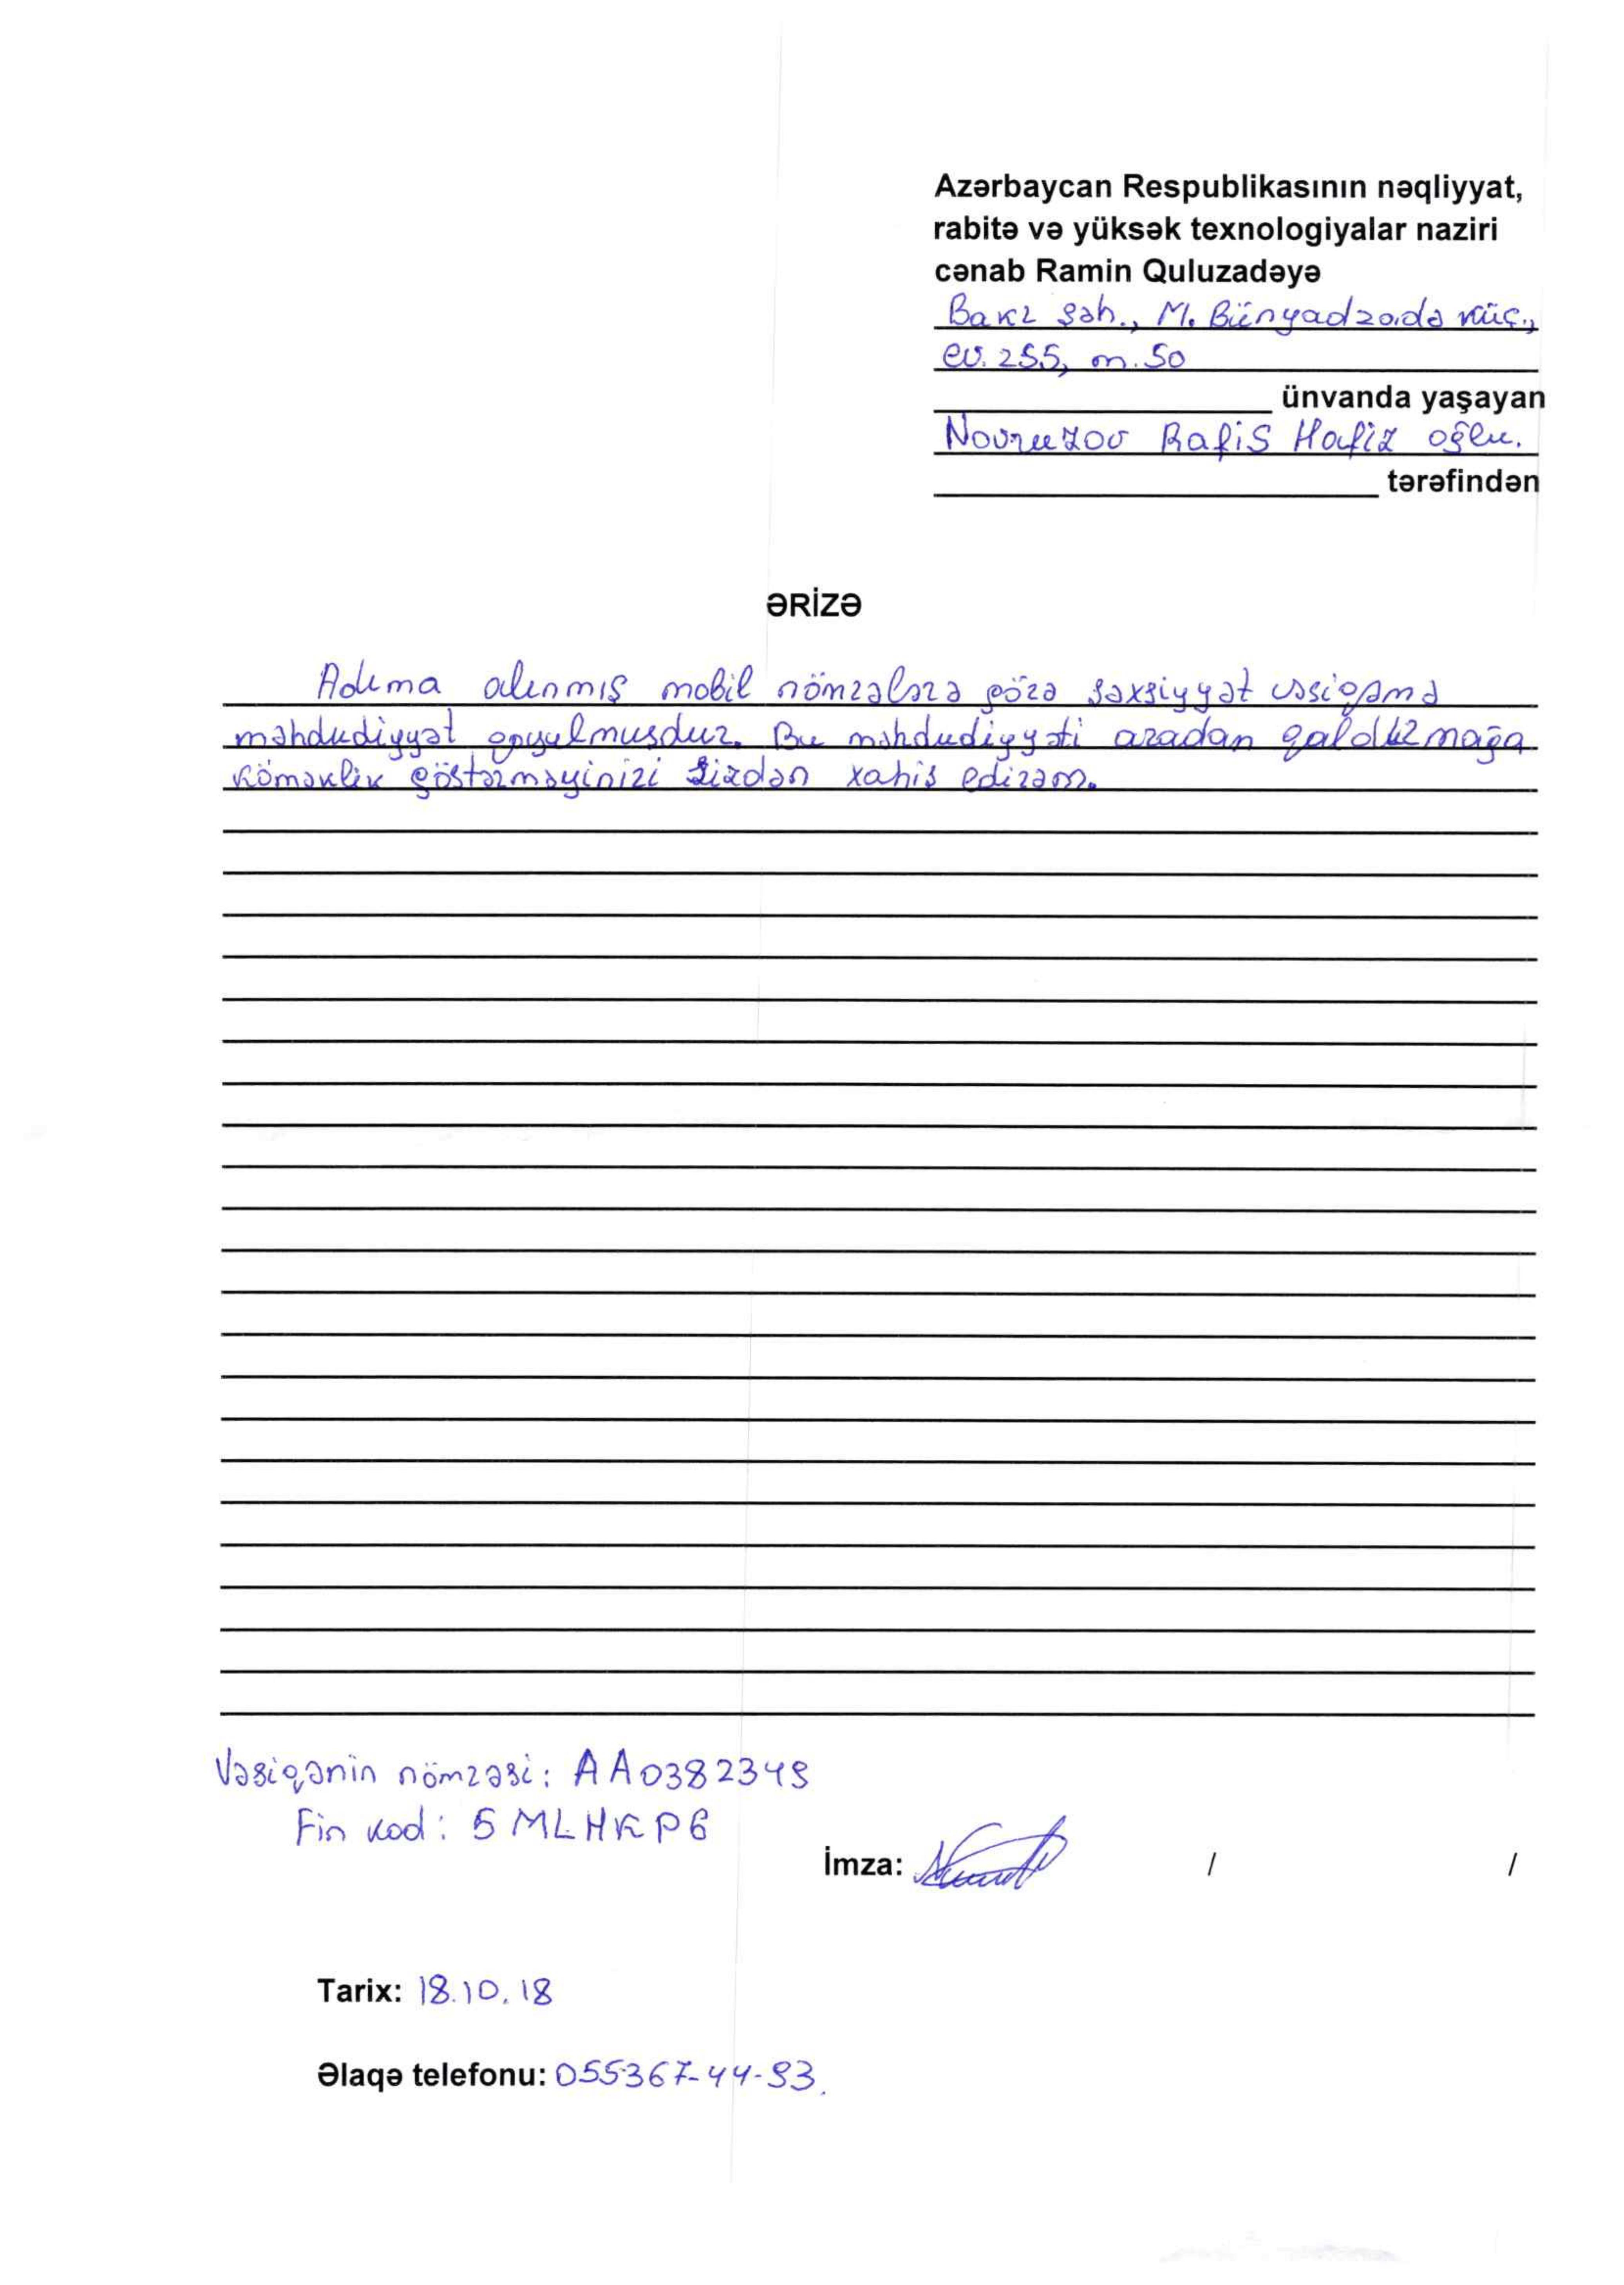 Azərbaycan Respublikasının nəqliyyat,
rabitə və yüksək texnologiyalar naziri
cənab Ramin Quluzadəyə
Bakı şəh., M. Bünyadzadə küç.,
ev. 255, m. 50
ünvanda yaşayan
Novruzov Rafis Hafiz oğlu.
tərəfindən
ƏRİZƏ
Adıma alınmış mobil nömrələrə görə şəxsiyyət vəsiqəmə
məhdudiyyət qoyulmuşdur. Bu məhdudiyyəti aradan qaldırmağa
köməklik göstərməyinizi Sizdən xahiş edirəm.
Vəsiqənin nömrəsi: AA0382349
Fin kod: 5MLHKP6
İmza: / /
Tarix: 18.10.18
Əlaqə telefonu: 055367-44-93.